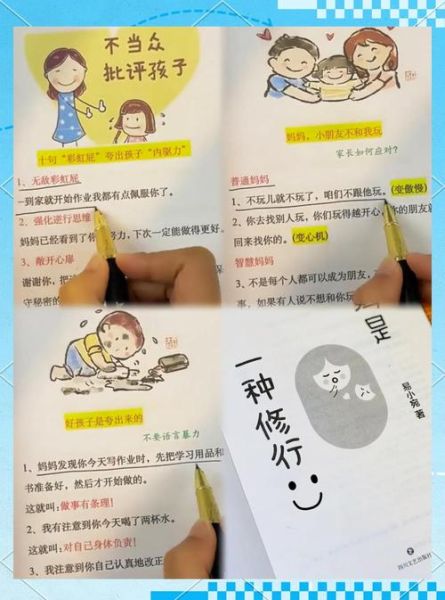 不当众
批评孩子
十句“彩虹屁”夸出孩子“内驱力”
1、无敌彩虹屁
一到家就开始作业我都有点佩服你了。
2、强化逆行思维
妈妈已经看到了你 努力，下次一定能做得更好。
3、敞开心扉
谢谢你，把
守秘密的
妈妈，小朋友不和我玩
家长如何应对?
普通妈妈
1、不玩儿就不玩了，咱们不跟他玩。(变傲慢)
2、你去找别人玩，你们玩得越开心， 的朋友就
回来找你的。(变心机)
智慧妈妈
3、不是每个人都可以成为朋友，
事，如果有人说不想和你玩
好孩子是夸出来的
不要语言暴力
1、妈妈发现你今天写作业时，先把学习用品和
书准备好，然后才开始做的。
这就叫:做事有条理!
2、我有注意到你今天喝了两杯水。
这就叫:对自己身体负责!
3、我注意到你自己认真地改正
是
一种修行
易小宛 著
四川文艺出版社